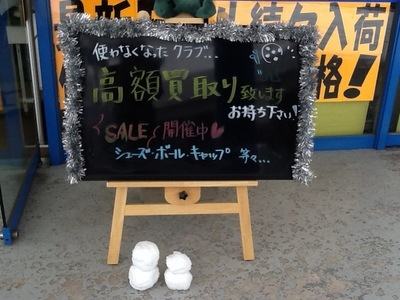 最新 続々入荷
格!
使わなくなった クラブ...
高額買取り致します
お持ち下さい!
SALE 開催中♥
シューズ・ボール・キャップ 等々...